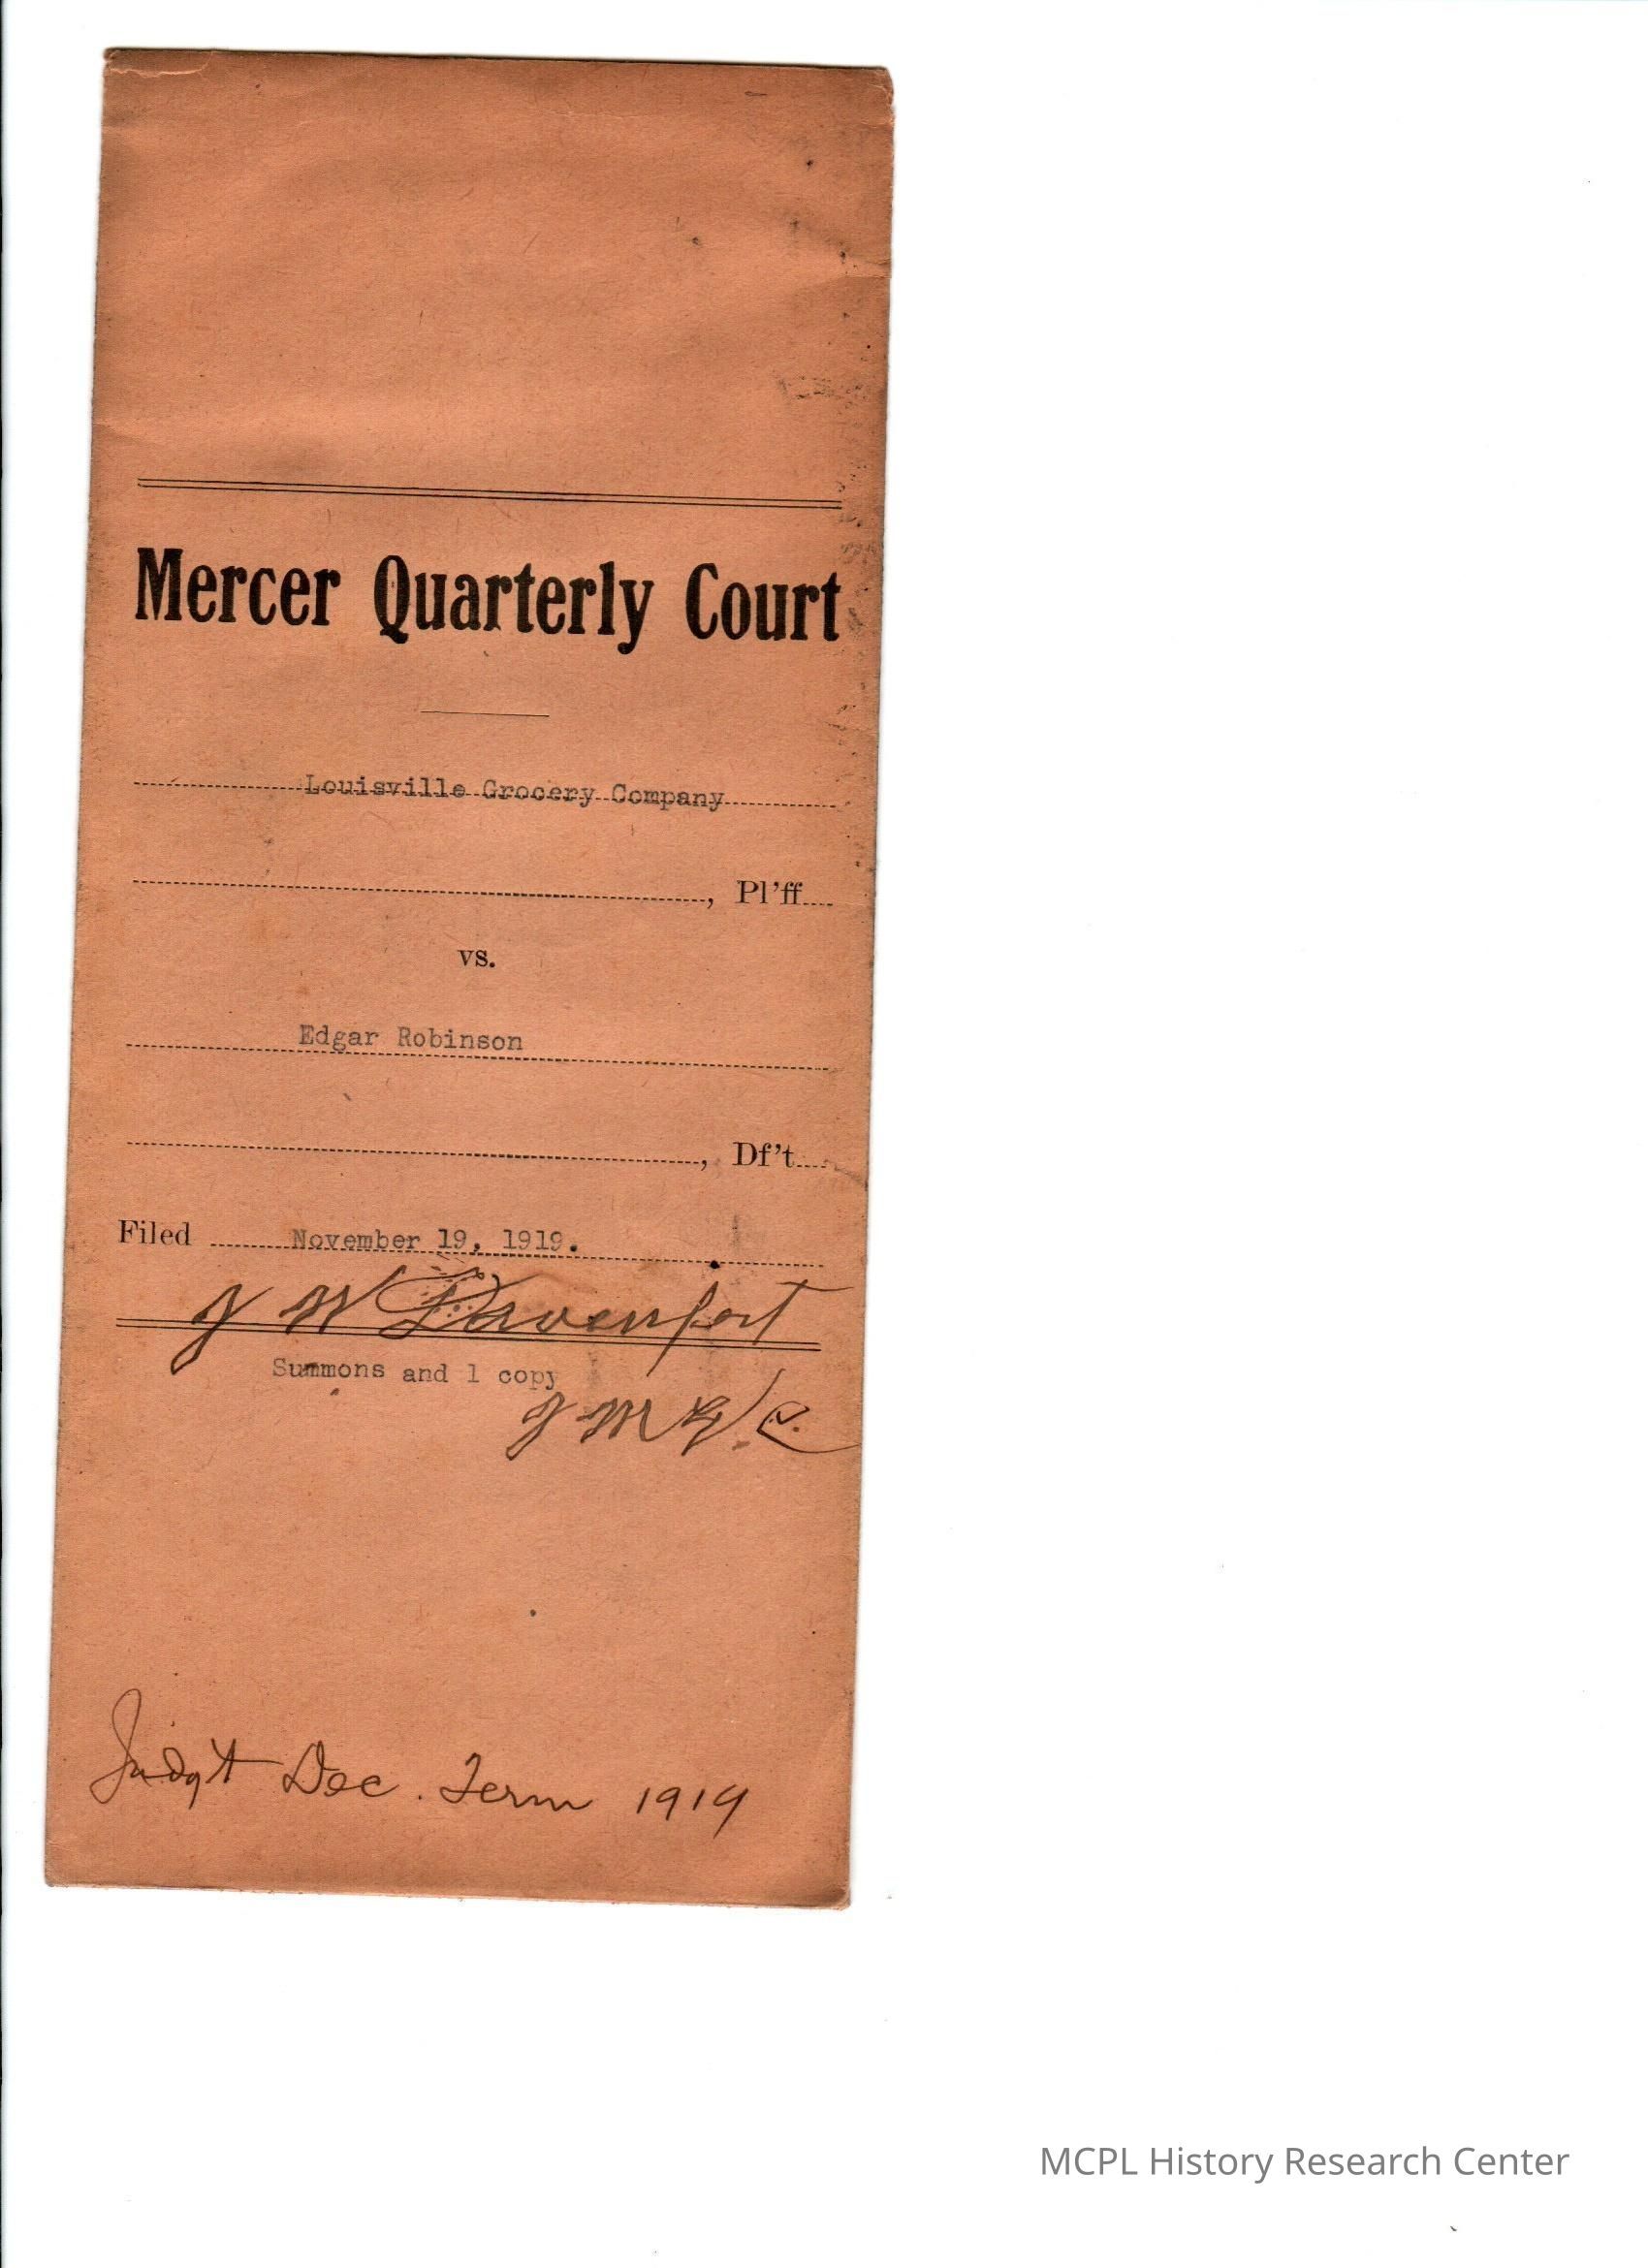 Mercer Quarterly Court
Louisville Grocery Company
, Pl'ff
vs.
Edgar Robinson
, Df't
Filed November 19, 1919.
J W Davenport
Summons and 1 copy
Judg't Dec. Term 1919
MCPL History Research Center